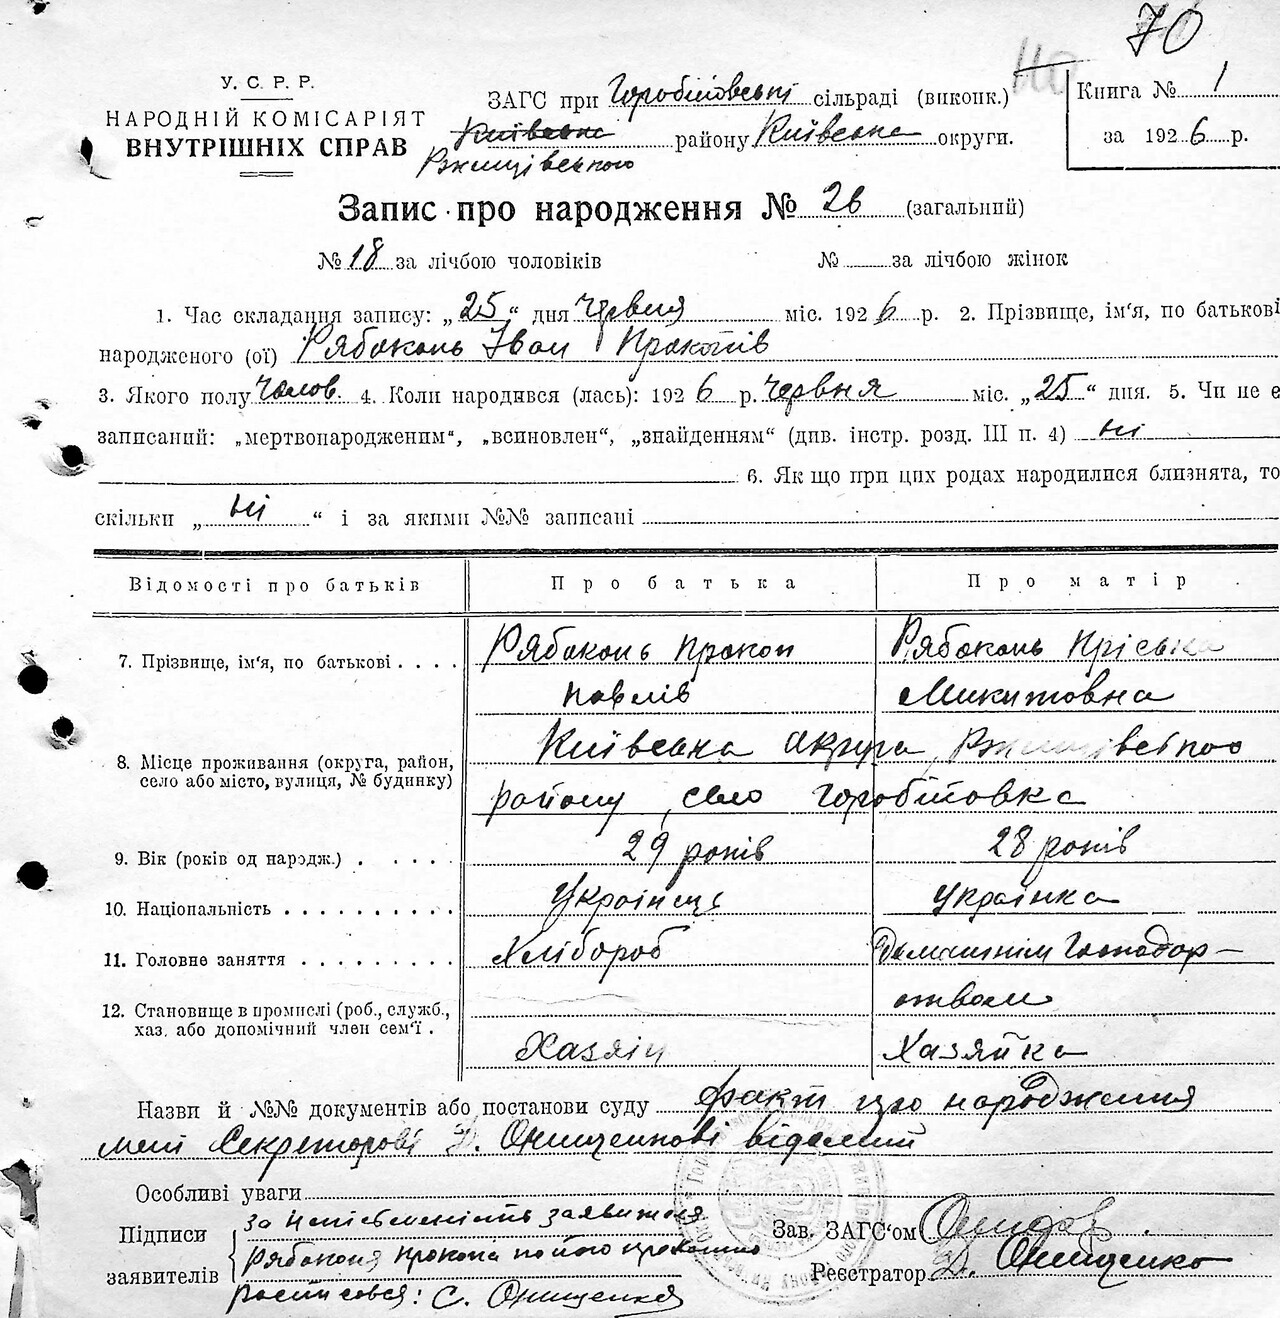 70
У. С. Р. Р.
НАРОДНІЙ КОМІСАРІЯТ
ВНУТРІШНІХ СПРАВ
ЗАГС при Горобіївські сільраді (виконк.)
Київська району Київська округи.
Ржищівського
Книга № 1
за 1926 р.
Запис про народження № 26 (загальний)
№ 18 за лічбою чоловіків № за лічбою жінок
1. Час складання запису: „25“ дня червня міс. 1926 р. 2. Прізвище, ім'я, по батькові
народженого (ої) Рябоконь Іван Прокопів
3. Якого полу чолов. 4. Коли народився (лась): 1926 р. червня міс. „25“ дня. 5. Чи не є
записаний: „мертвонародженим“, „всиновлен“, „знайденням“ (див. інстр. розд. III п. 4) ні
6. Як що при цих родах народилися близнята, то
скільки „ні“ і за якими №№ записані
Відомості про батьків Про батька Про матір
7. Прізвище, ім'я, по батькові Рябоконь Прокоп Рябоконь Пріська
Павлів Микитовна
Київська округа, Ржищівського
8. Місце проживання (округа, район,
село або місто, вулиця, № будинку)
району, село Горобіївка
9. Вік (років од народж.) 29 років 28 років
10. Національність Українець Українка
11. Головне заняття Хлібороб Домашнім господар-
ством
12. Становище в промислі (роб., служб.,
хаз. або допомічний член сем'ї.
Хазяїн Хазяйка
Назви й №№ документів або постанови суду факт цього народження
мені Секреторові Д. Онищенкові відомий
Особливі уваги
Підписи
заявителів
за неписьменність заявителя
Рябоконя Прокопа по його проханню
росписовся: С. Онищенко
Зав. ЗАГС'ом
Реєстратор Д. Онищенко